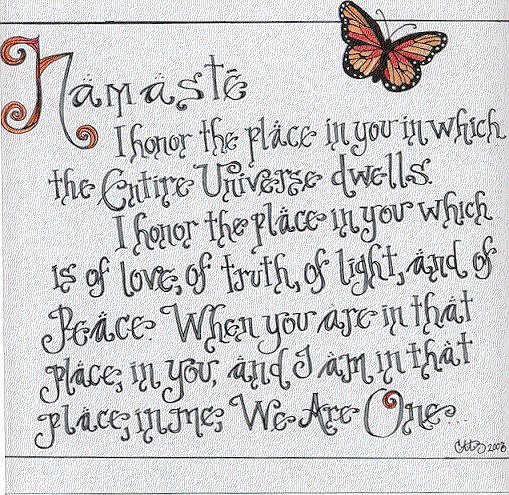 Namasté
I honor the place in you in which
the Entire Universe dwells.
I honor the place in you which
is of love, of truth, of light, and of
Peace. When you are in that
place, in you, and I am in that
place, in me, We Are One...
2008